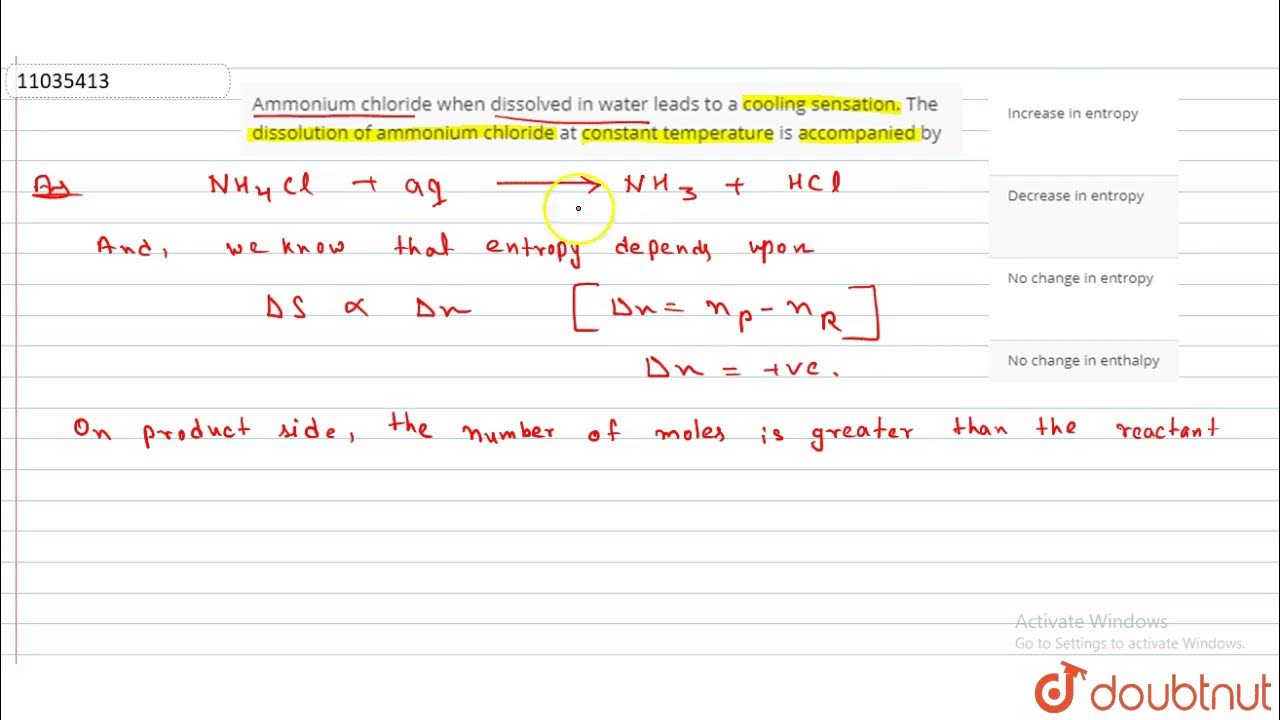 11035413
Ammonium chloride when dissolved in water leads to a cooling sensation. The
dissolution of ammonium chloride at constant temperature is accompanied by
Increase in entropy
Decrease in entropy
No change in entropy
No change in enthalpy
Ans
NH4Cl + aq → NH3 + HCl
And, we know that entropy depends upon
ΔS ∝ Δn [Δn = nP - nR]
Δn = +ve.
On product side, the number of moles is greater than the reactant
Activate Windows
Go to Settings to activate Windows.
doubtnut